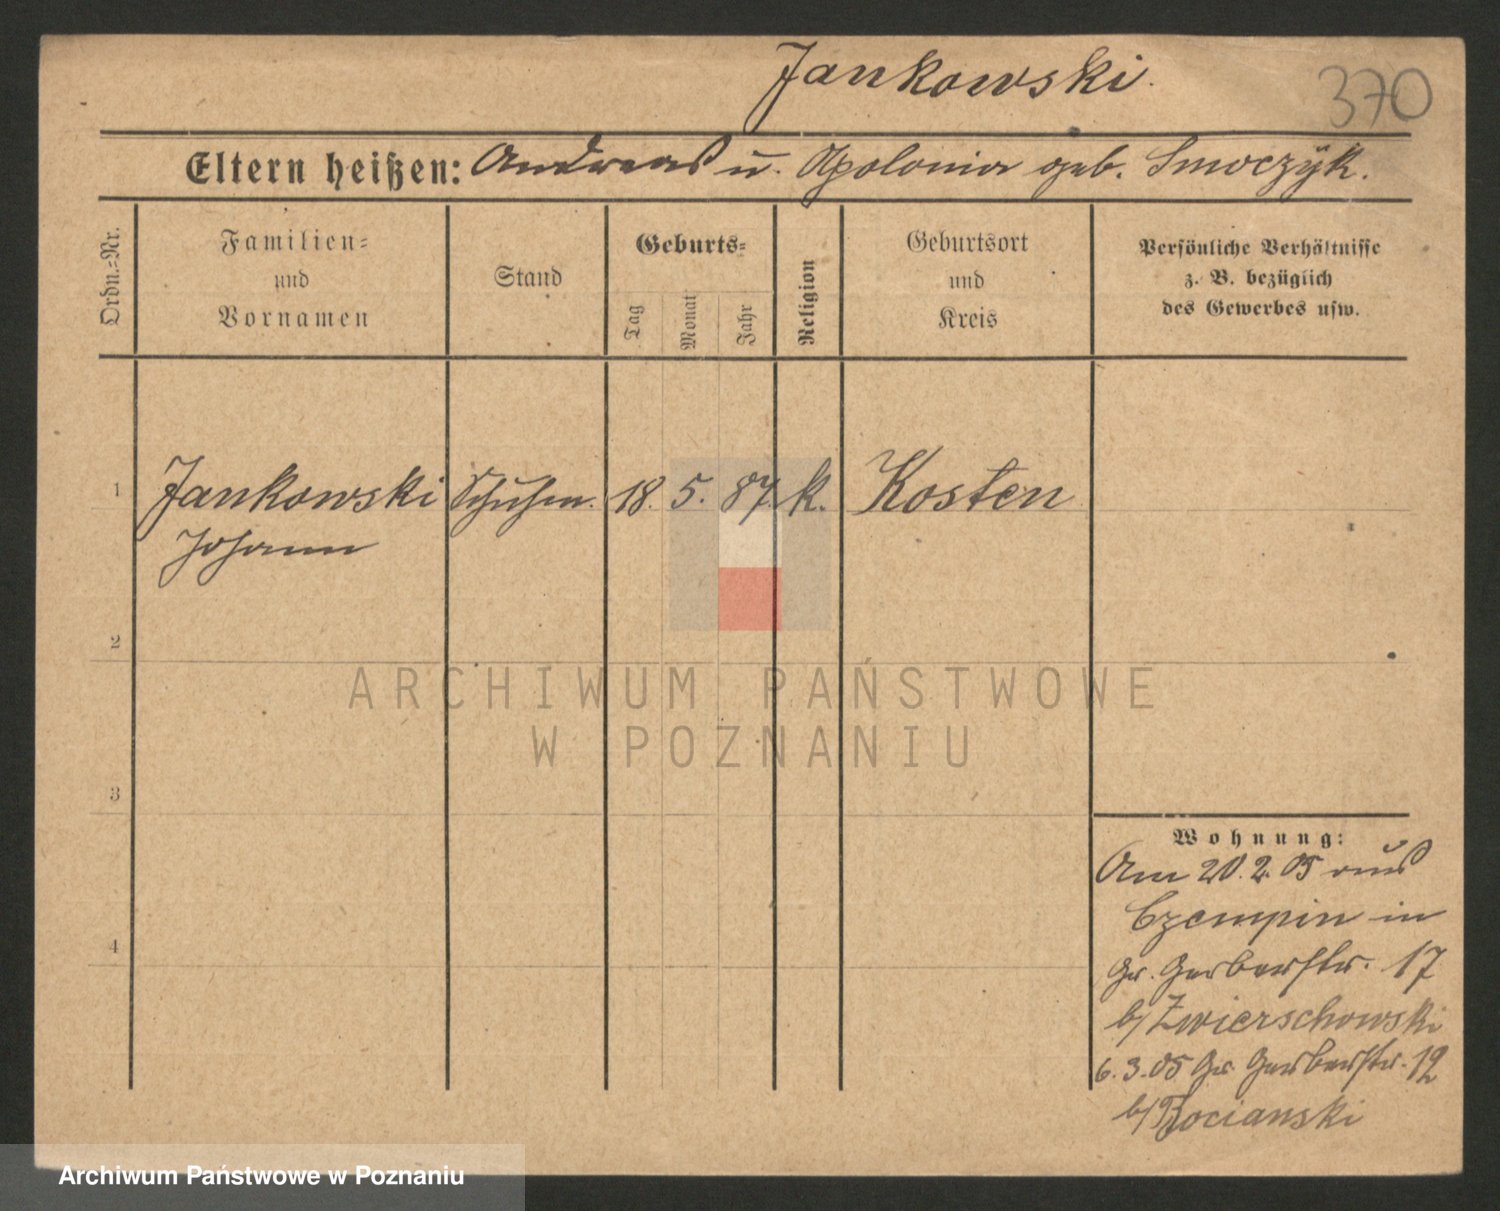 Jankowski.
370
Eltern heißen: Andreas u. Apolonia geb. Smoczyk.
Ordn.-Nr.
Familien- und Vornamen
Stand
Geburts-
Tag
Monat
Jahr
Religion
Geburtsort und Kreis
Persönliche Verhältnisse
z. B. bezüglich
des Gewerbes usw.
1 Jankowski Schuhm. 18. 5. 87. k. Kosten
Johann
2
3
4
Wohnung:
Am 20.2.05 aus
Czempin in
Gr. Gerberstr. 17
b/ Zwierschowski
6.3.05 Gr. Gerberstr. 12
b/ Bocianski
ARCHIWUM PAŃSTWOWE
W POZNANIU
Archiwum Państwowe w Poznaniu